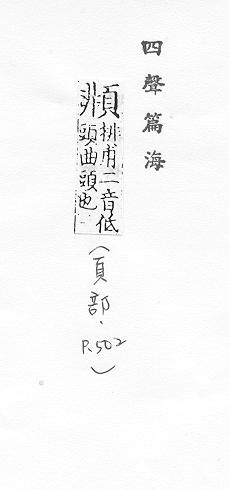 四聲篇海
排甫二音低
頭曲頭也
(頁部.
P.502)